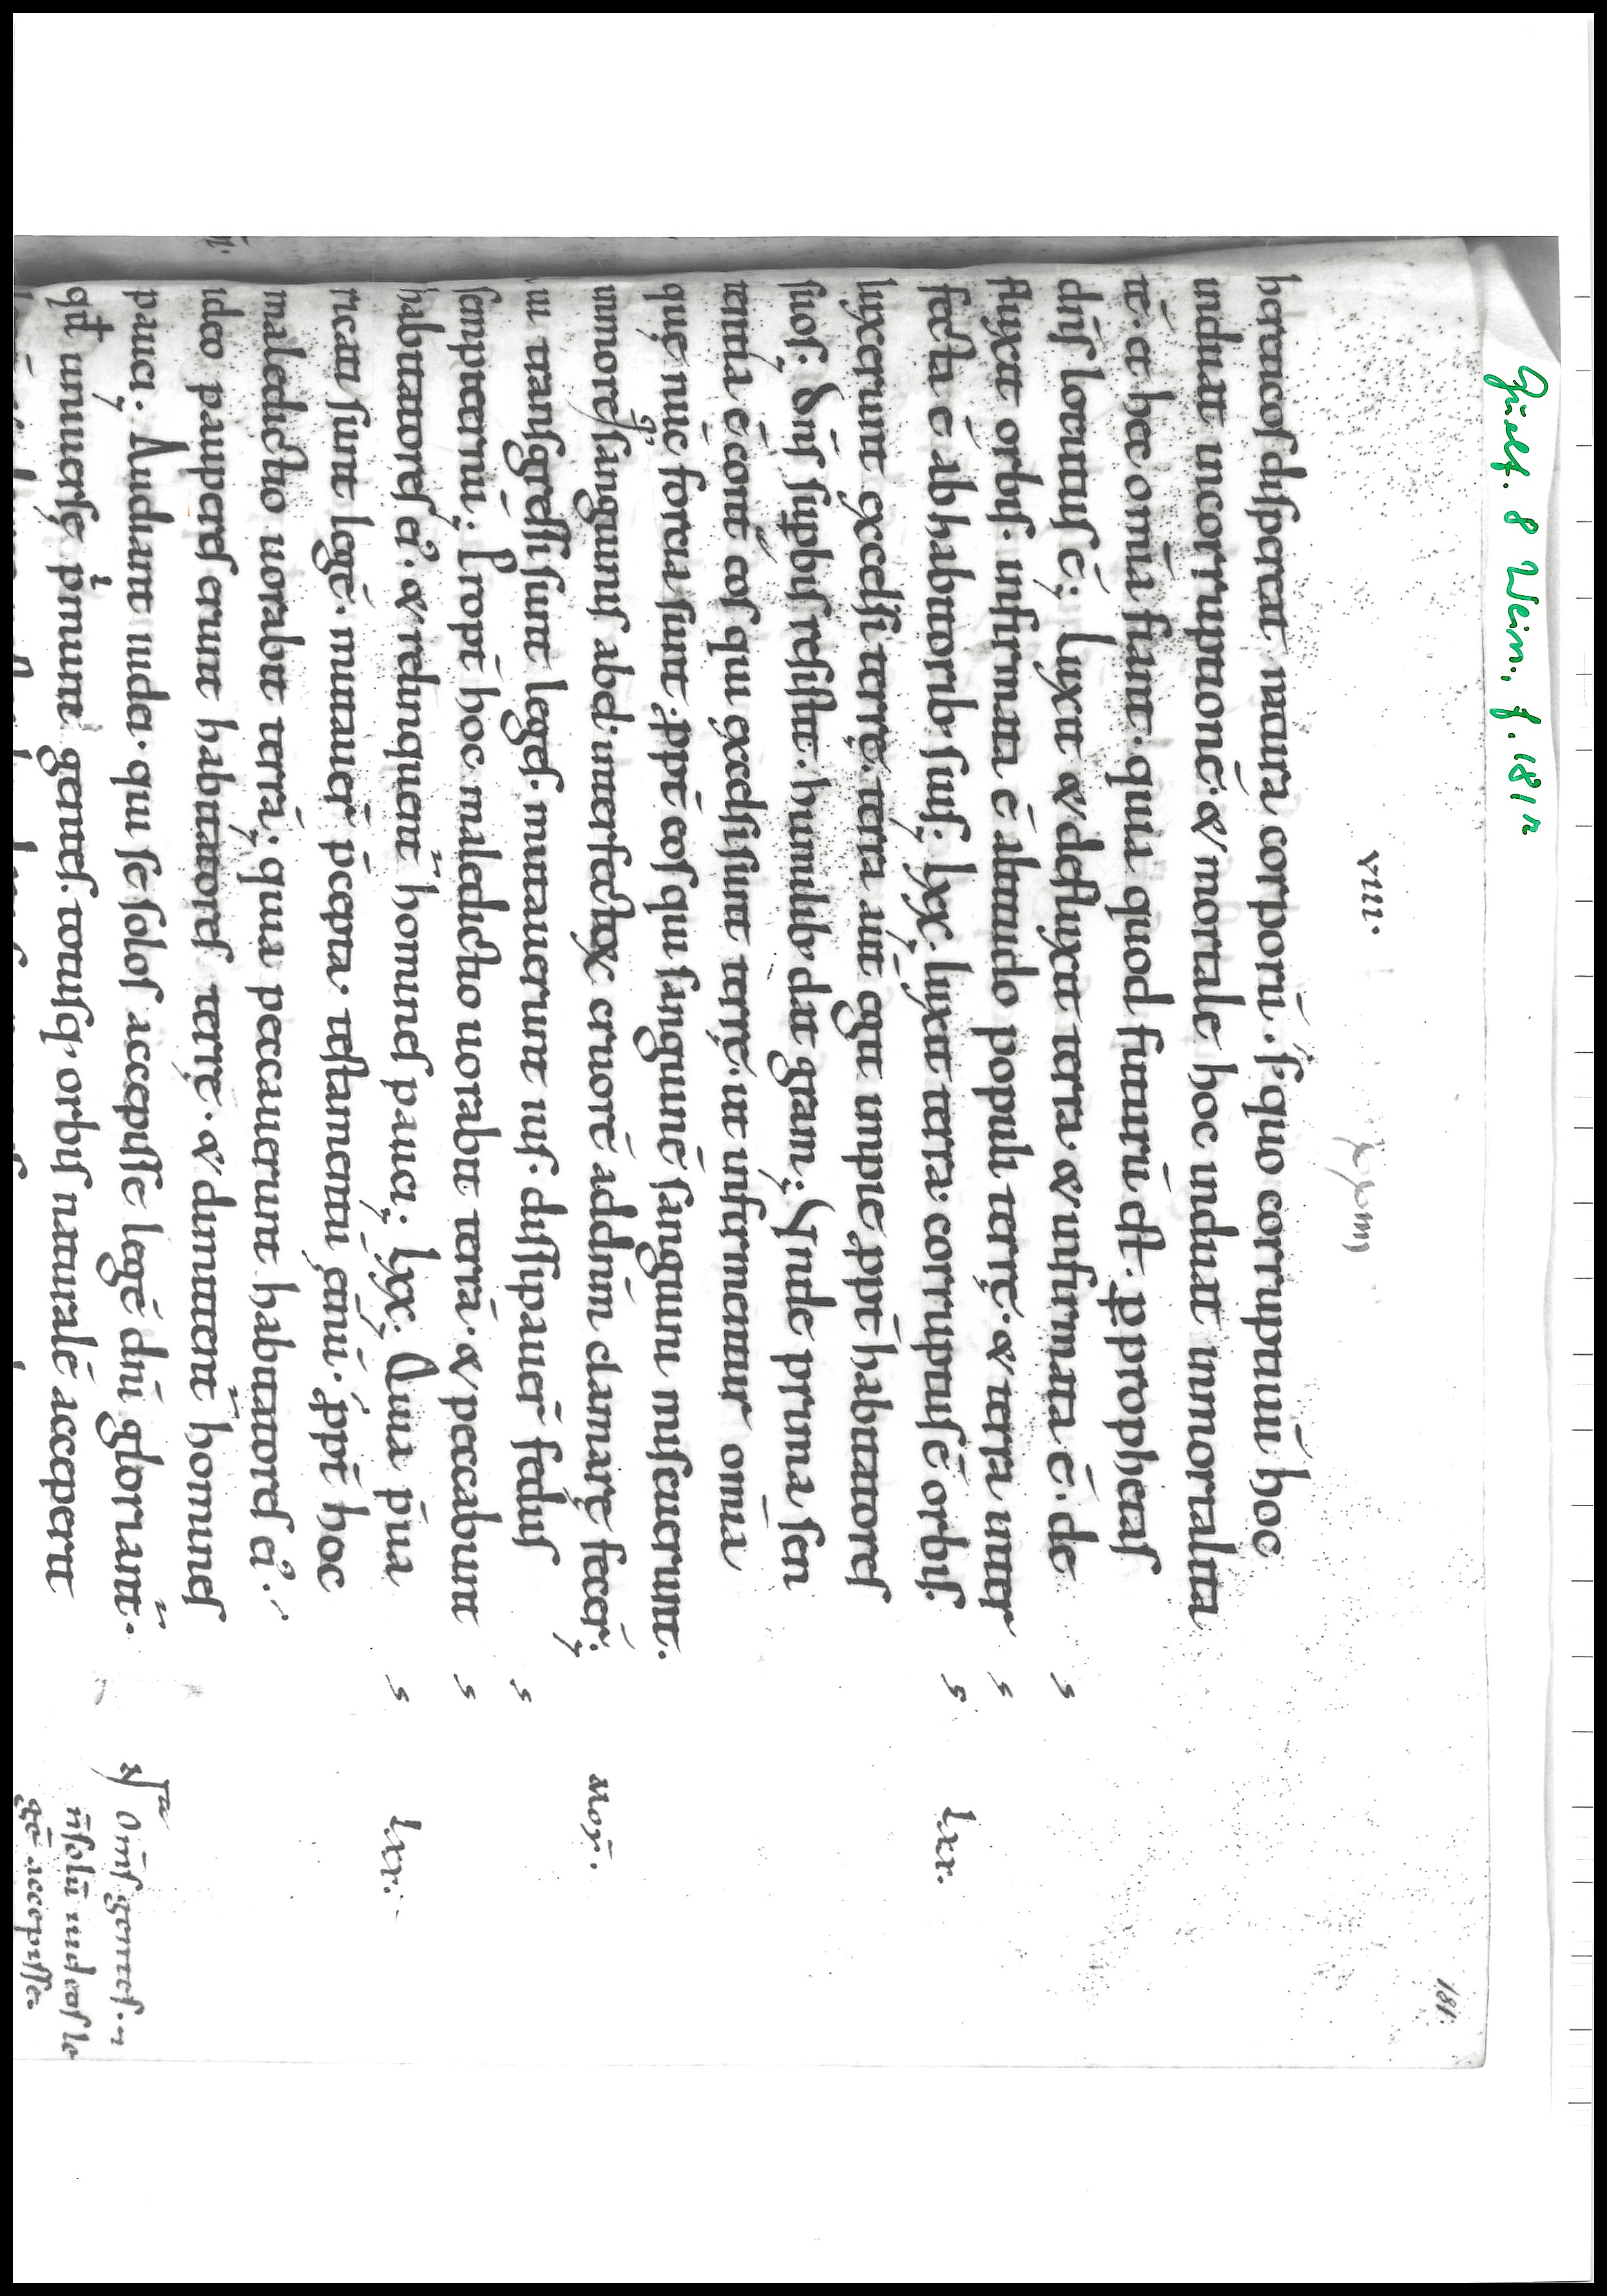 Guelf. 8 Weim., f. 181r
181.
VIII.
hereticos disperdat naturā corporū. s; quo corruptiuū hoc
induat incorruptionē. & mortale hoc induat inmortalita
tē. et hec om̄ia fiant. quia quod futurū est. ꝑ prophetas
dn̄s locutus ē; Luxit & defluxit terra. & infirmata ē. de
fluxit orbis. infirmata ē altitudo populi terrę. & terra inter
fecta ē ab habitatorib; suis. Lxx. luxit terra. corruptus ē orbis. lxx.
luxerunt excelsi terrę. terra aūt egit impie ꝓpt̄ habitatores
suos. Dn̄s sup̄bis resistit. humilib; dat gr̄am; Unde prima sen
tentia ē cont̄ eos qui excelsi sunt terrę. ut infirmentur om̄ia
quę nūc fortia sunt. ꝓpt̄ eos qui sanguinē sanguini miscuerunt.
sanguinis abel. cruorē ad dn̄m clamare fecer̄;
transgressi sunt leges. mutauerunt ius. dissipauer̄ fedus
sempiternū; Propt̄ hoc maledictio uorabit terrā. & peccabunt
habitatores ei᾿. & relinquent̄ homines pauci; Lxx. Quia p̄ua lxx.
ricati sunt legē. mutauer̄ p̄cepta. testamentū ꝓpt̄ hoc
maledictio uorabit terrā; quia peccauerunt habitatores ei᾿.
ideo pauperes erunt habitatores terrę. & dimittent̄ homines
pauci. Audiant iudei. qui se solos accepisse legē dn̄i gloriant̄.
uniuersę primum gentes. totusq; orbis naturalē acceperit
Om̄s gentes. n̄ solū iudeos le
gē accepisse.